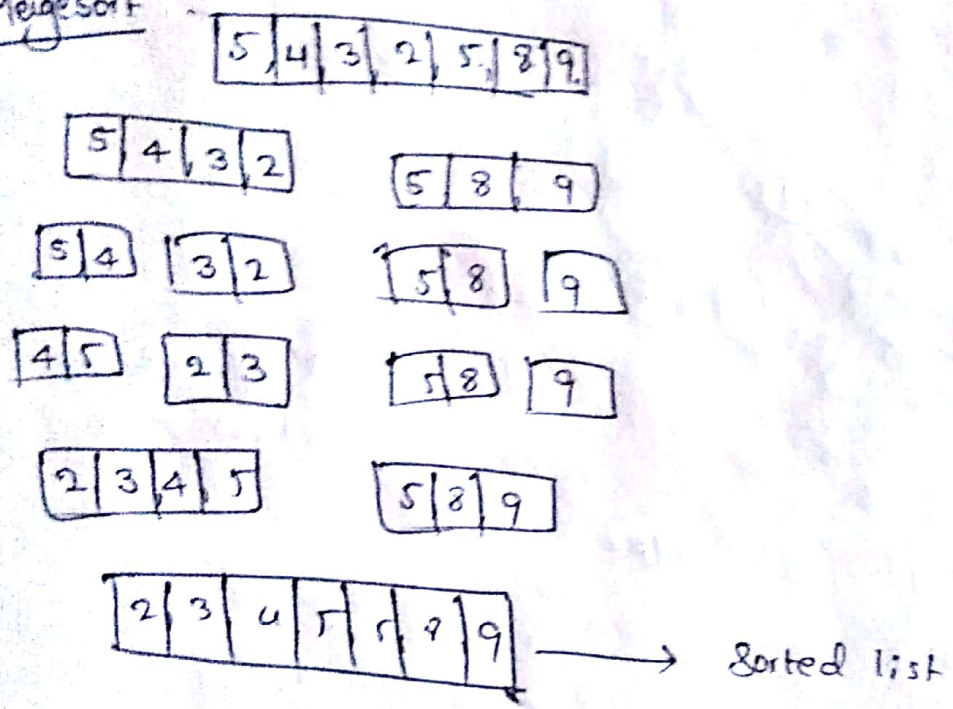 Mergesort
5 4 3 2 5 8 9
5 4 3 2 5 8 9
5 4 3 2 5 8 9
4 5 2 3 5 8 9
2 3 4 5 5 8 9
2 3 4 5 5 8 9 → Sorted list